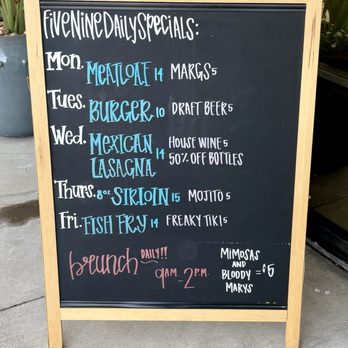 FIVENINEDAILYSPECIALS:
Mon. MEATLOAF 14 MARGS 5
Tues. BURGER 10 DRAFT BEER 5
Wed. MEXICAN LASAGNA 14 HOUSE WINE 5 50% OFF BOTTLES
Thurs. 8oz SIRLOIN 15 MOJITO 5
Fri. FISH FRY 14 FREAKY TIKI 5
brunch DAILY!! 9AM-2PM
MIMOSAS
AND
BLOODY = $5
MARYS